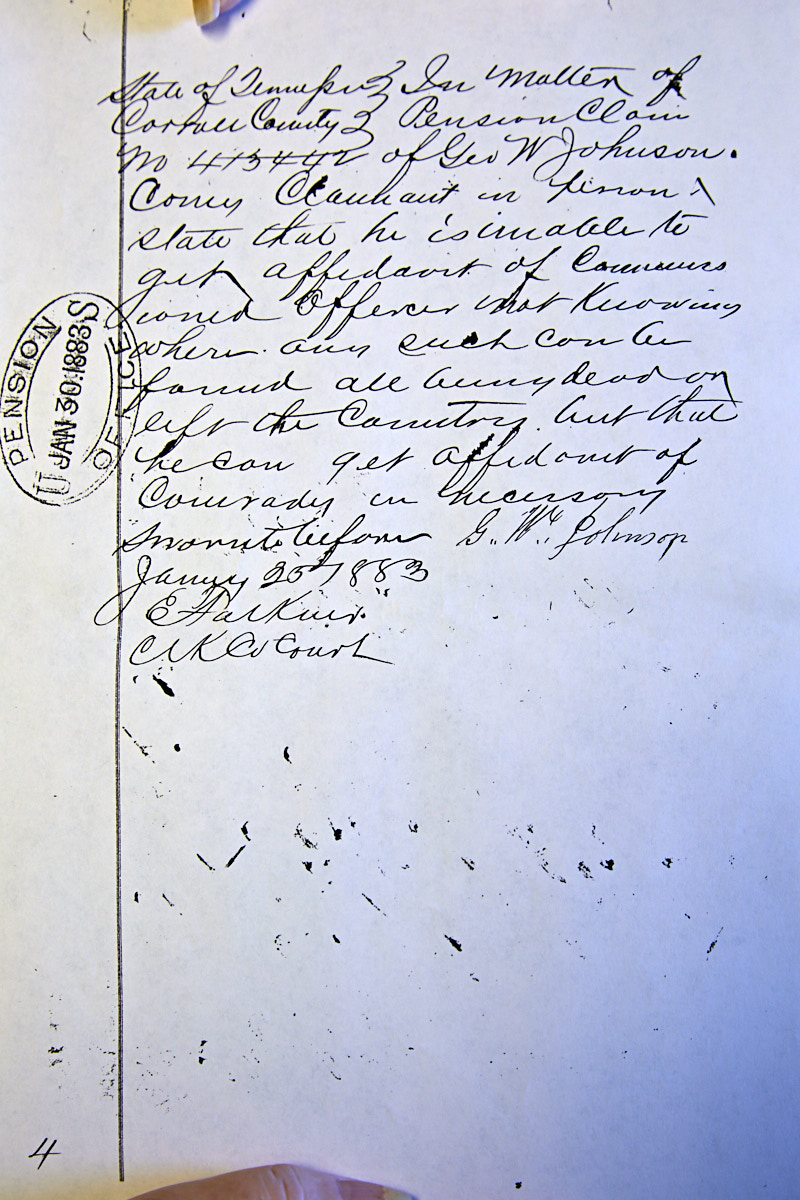 State of Tennessee } In Matter of
Carroll County } Pension Claim
No 413442 of Geo W Johnson.
Comes Claimant in person &
state that he is unable to
get affidavit of Commiss
ioned Officer not Knowing
where any such can be
found all being dead or
left the Country but that
he can get affidavit of
Comrades in necessary
Sworn to before G. W. Johnson
Janry 25 1883
E Falkner
Clk Co Court
PENSION OFFICE
U.S.
JAN 30.1883
4